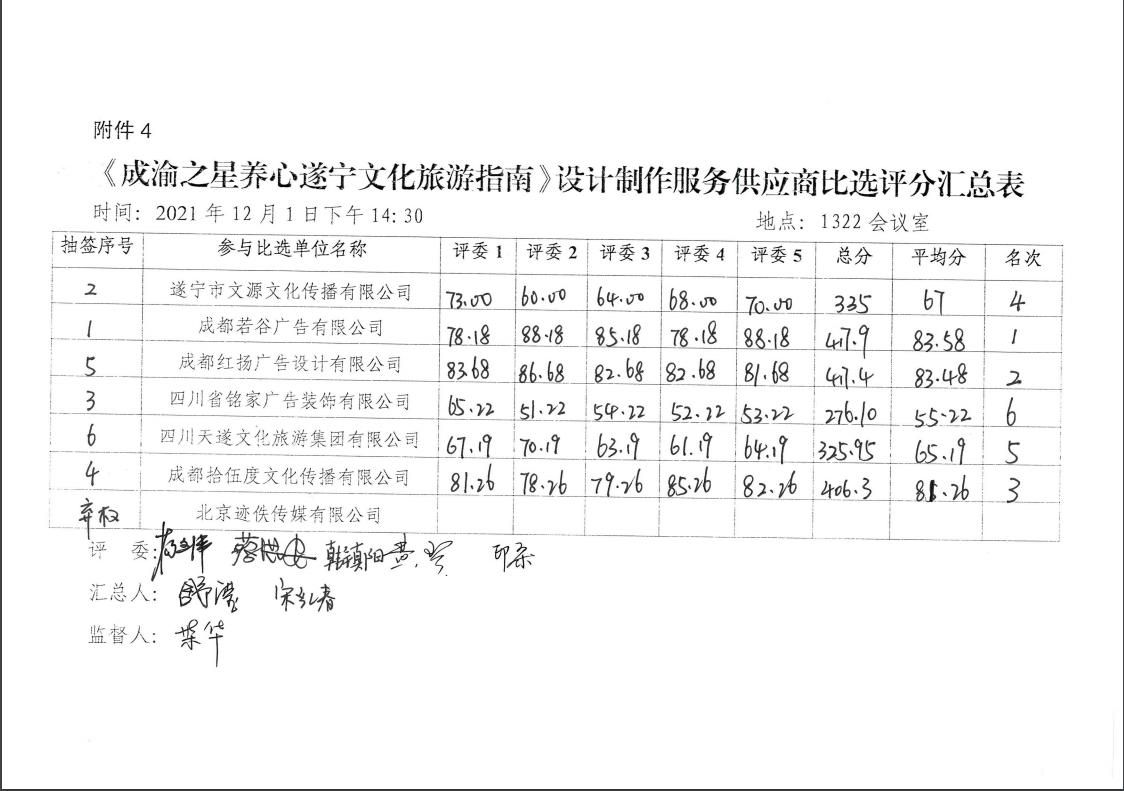 附件 4
《成渝之星养心遂宁文化旅游指南》设计制作服务供应商比选评分汇总表
时间：2021 年 12 月 1 日下午 14:30 地点：1322 会议室
抽签序号 参与比选单位名称 评委 1 评委 2 评委 3 评委 4 评委 5 总分 平均分 名次
2 遂宁市文源文化传播有限公司 73.00 60.00 64.00 68.00 70.00 335 67 4
1 成都若谷广告有限公司 78.18 88.18 85.18 78.18 88.18 417.9 83.58 1
5 成都红扬广告设计有限公司 83.68 86.68 82.68 82.68 81.68 417.4 83.48 2
3 四川省铭家广告装饰有限公司 65.22 51.22 54.22 52.22 53.22 276.10 55.22 6
6 四川天遂文化旅游集团有限公司 67.19 70.19 63.19 61.19 64.19 325.95 65.19 5
4 成都拾伍度文化传播有限公司 81.26 78.26 79.26 85.26 82.26 406.3 81.26 3
弃权 北京迹佚传媒有限公司
评 委： 韩镇阳
汇总人：
监督人：